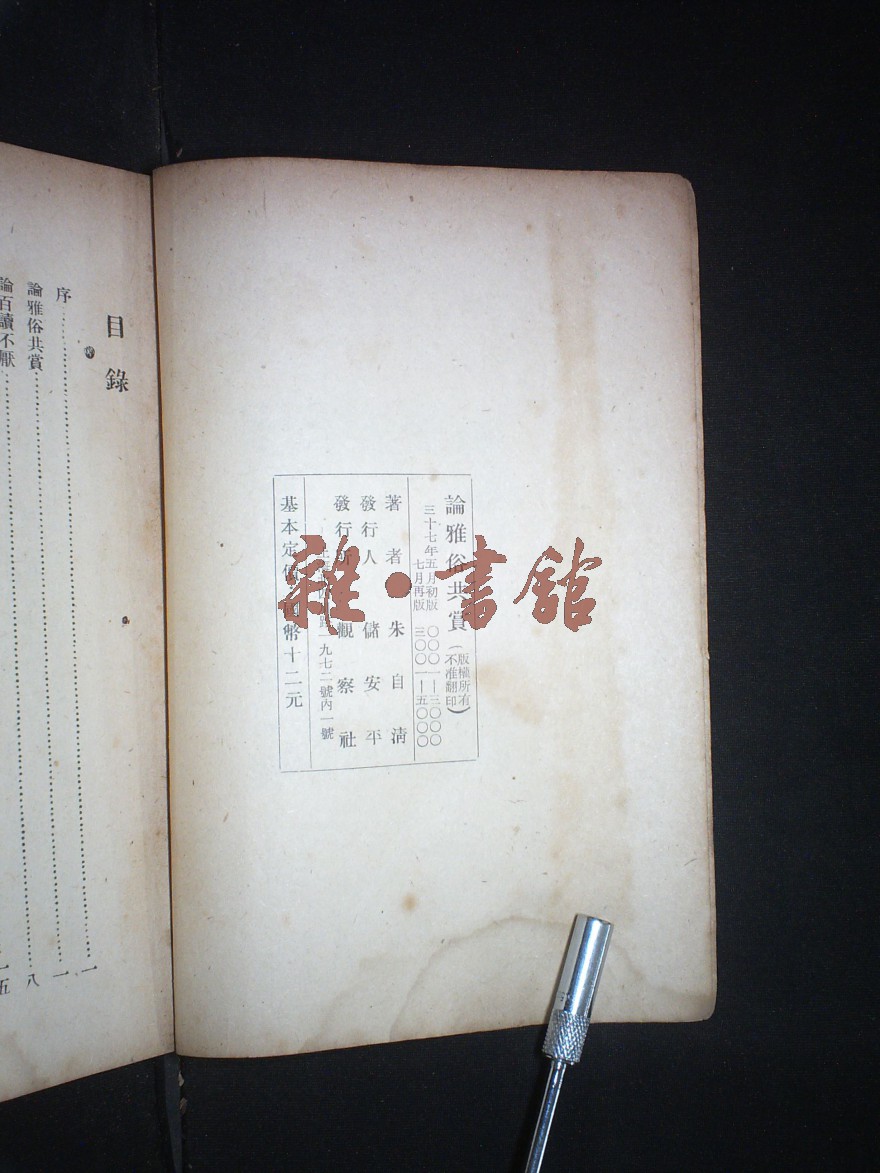 論雅俗共賞（版權所有 不准翻印）
三十七年五月初版　〇〇〇一—三〇〇〇
七月再版　三〇〇一—五〇〇〇
著者　朱自清
發行人　儲安平
發行所　觀察社
一九七二號內一號
基本定價國幣十二元
雜·書館
目錄
序……一
論雅俗共賞……一
論百讀不厭……八
五